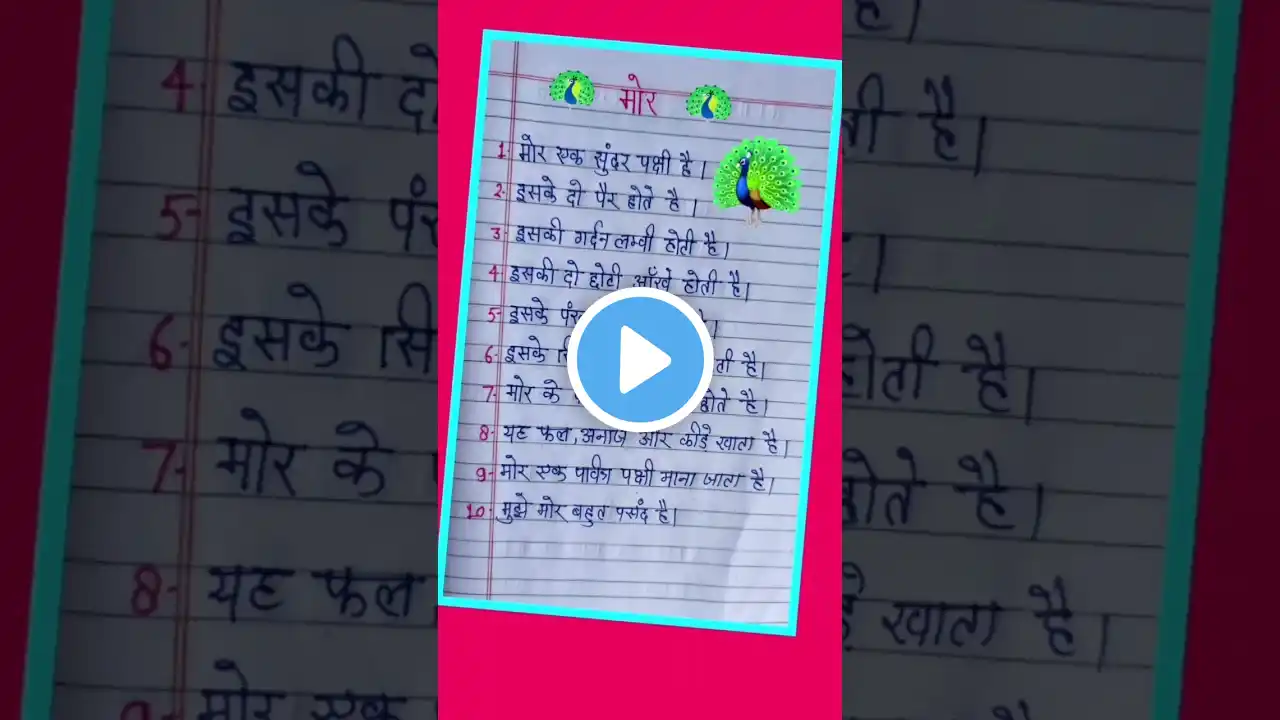 मोर
1- मोर एक सुंदर पक्षी है।
2- इसके दो पैर होते है।
3- इसकी गर्दन लम्बी होती है।
4- इसकी दो छोटी आँखे होती है।
5- इसके पंख
6- इसके ती है।
7- मोर के होते है।
8- यह फल, अनाज और कीड़े खाता है।
9- मोर एक पवित्र पक्षी माना जाता है।
10- मुझे मोर बहुत पसंद है।